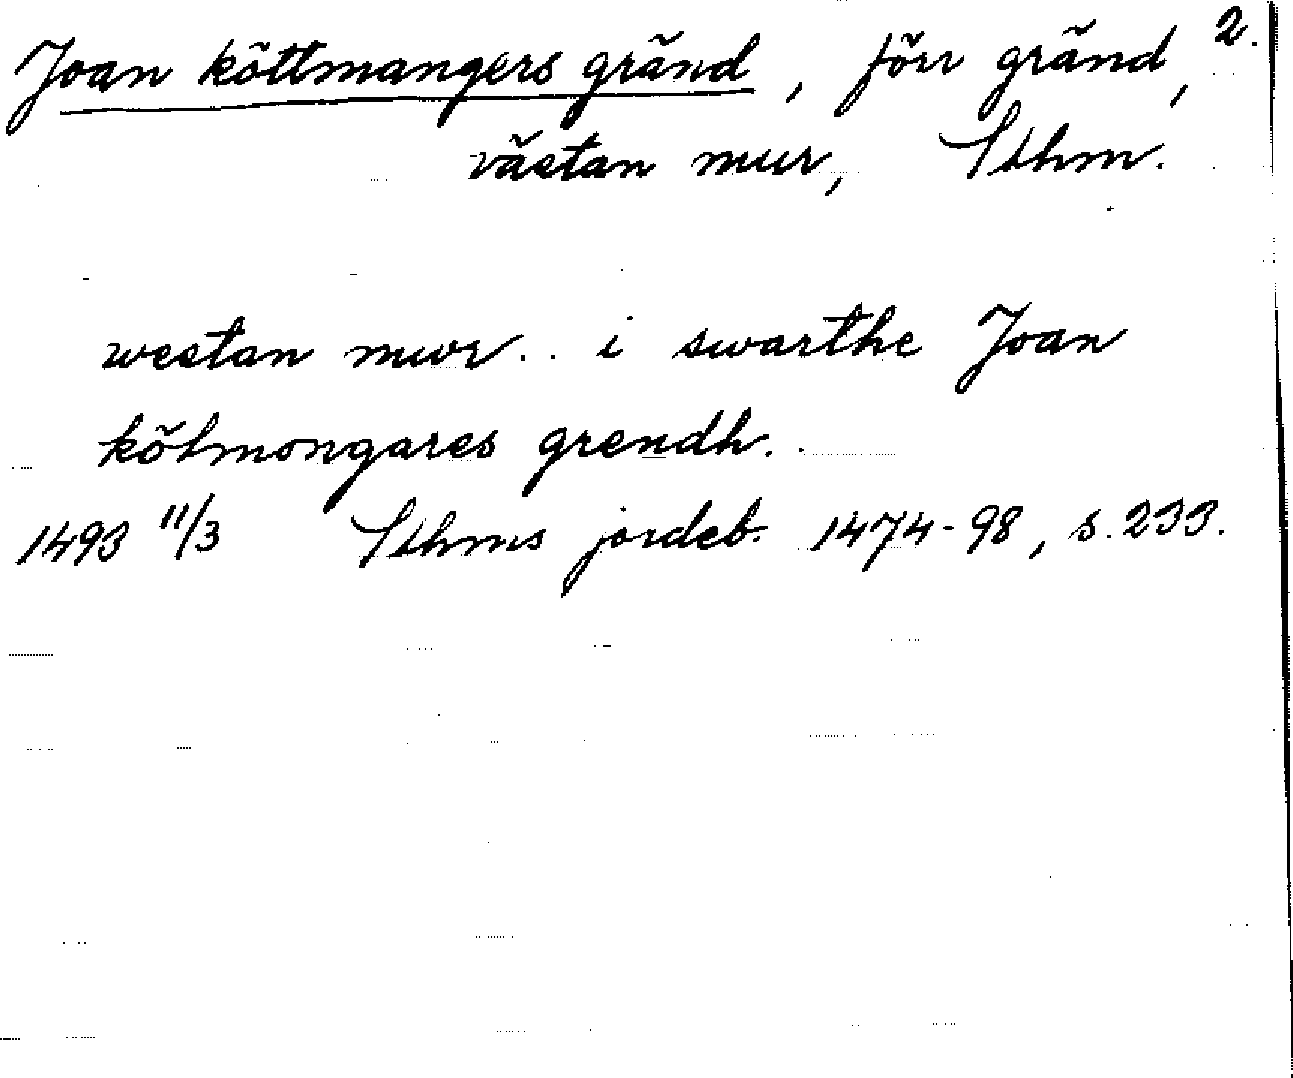 Joan köttmangers gränd, förr gränd, 2.
västan mur, Sthm.
westan mwr.. i swarthe Joan
kötmongares grendh..
1493 11/3 Sthms jordeb. 1474-98, s. 233.